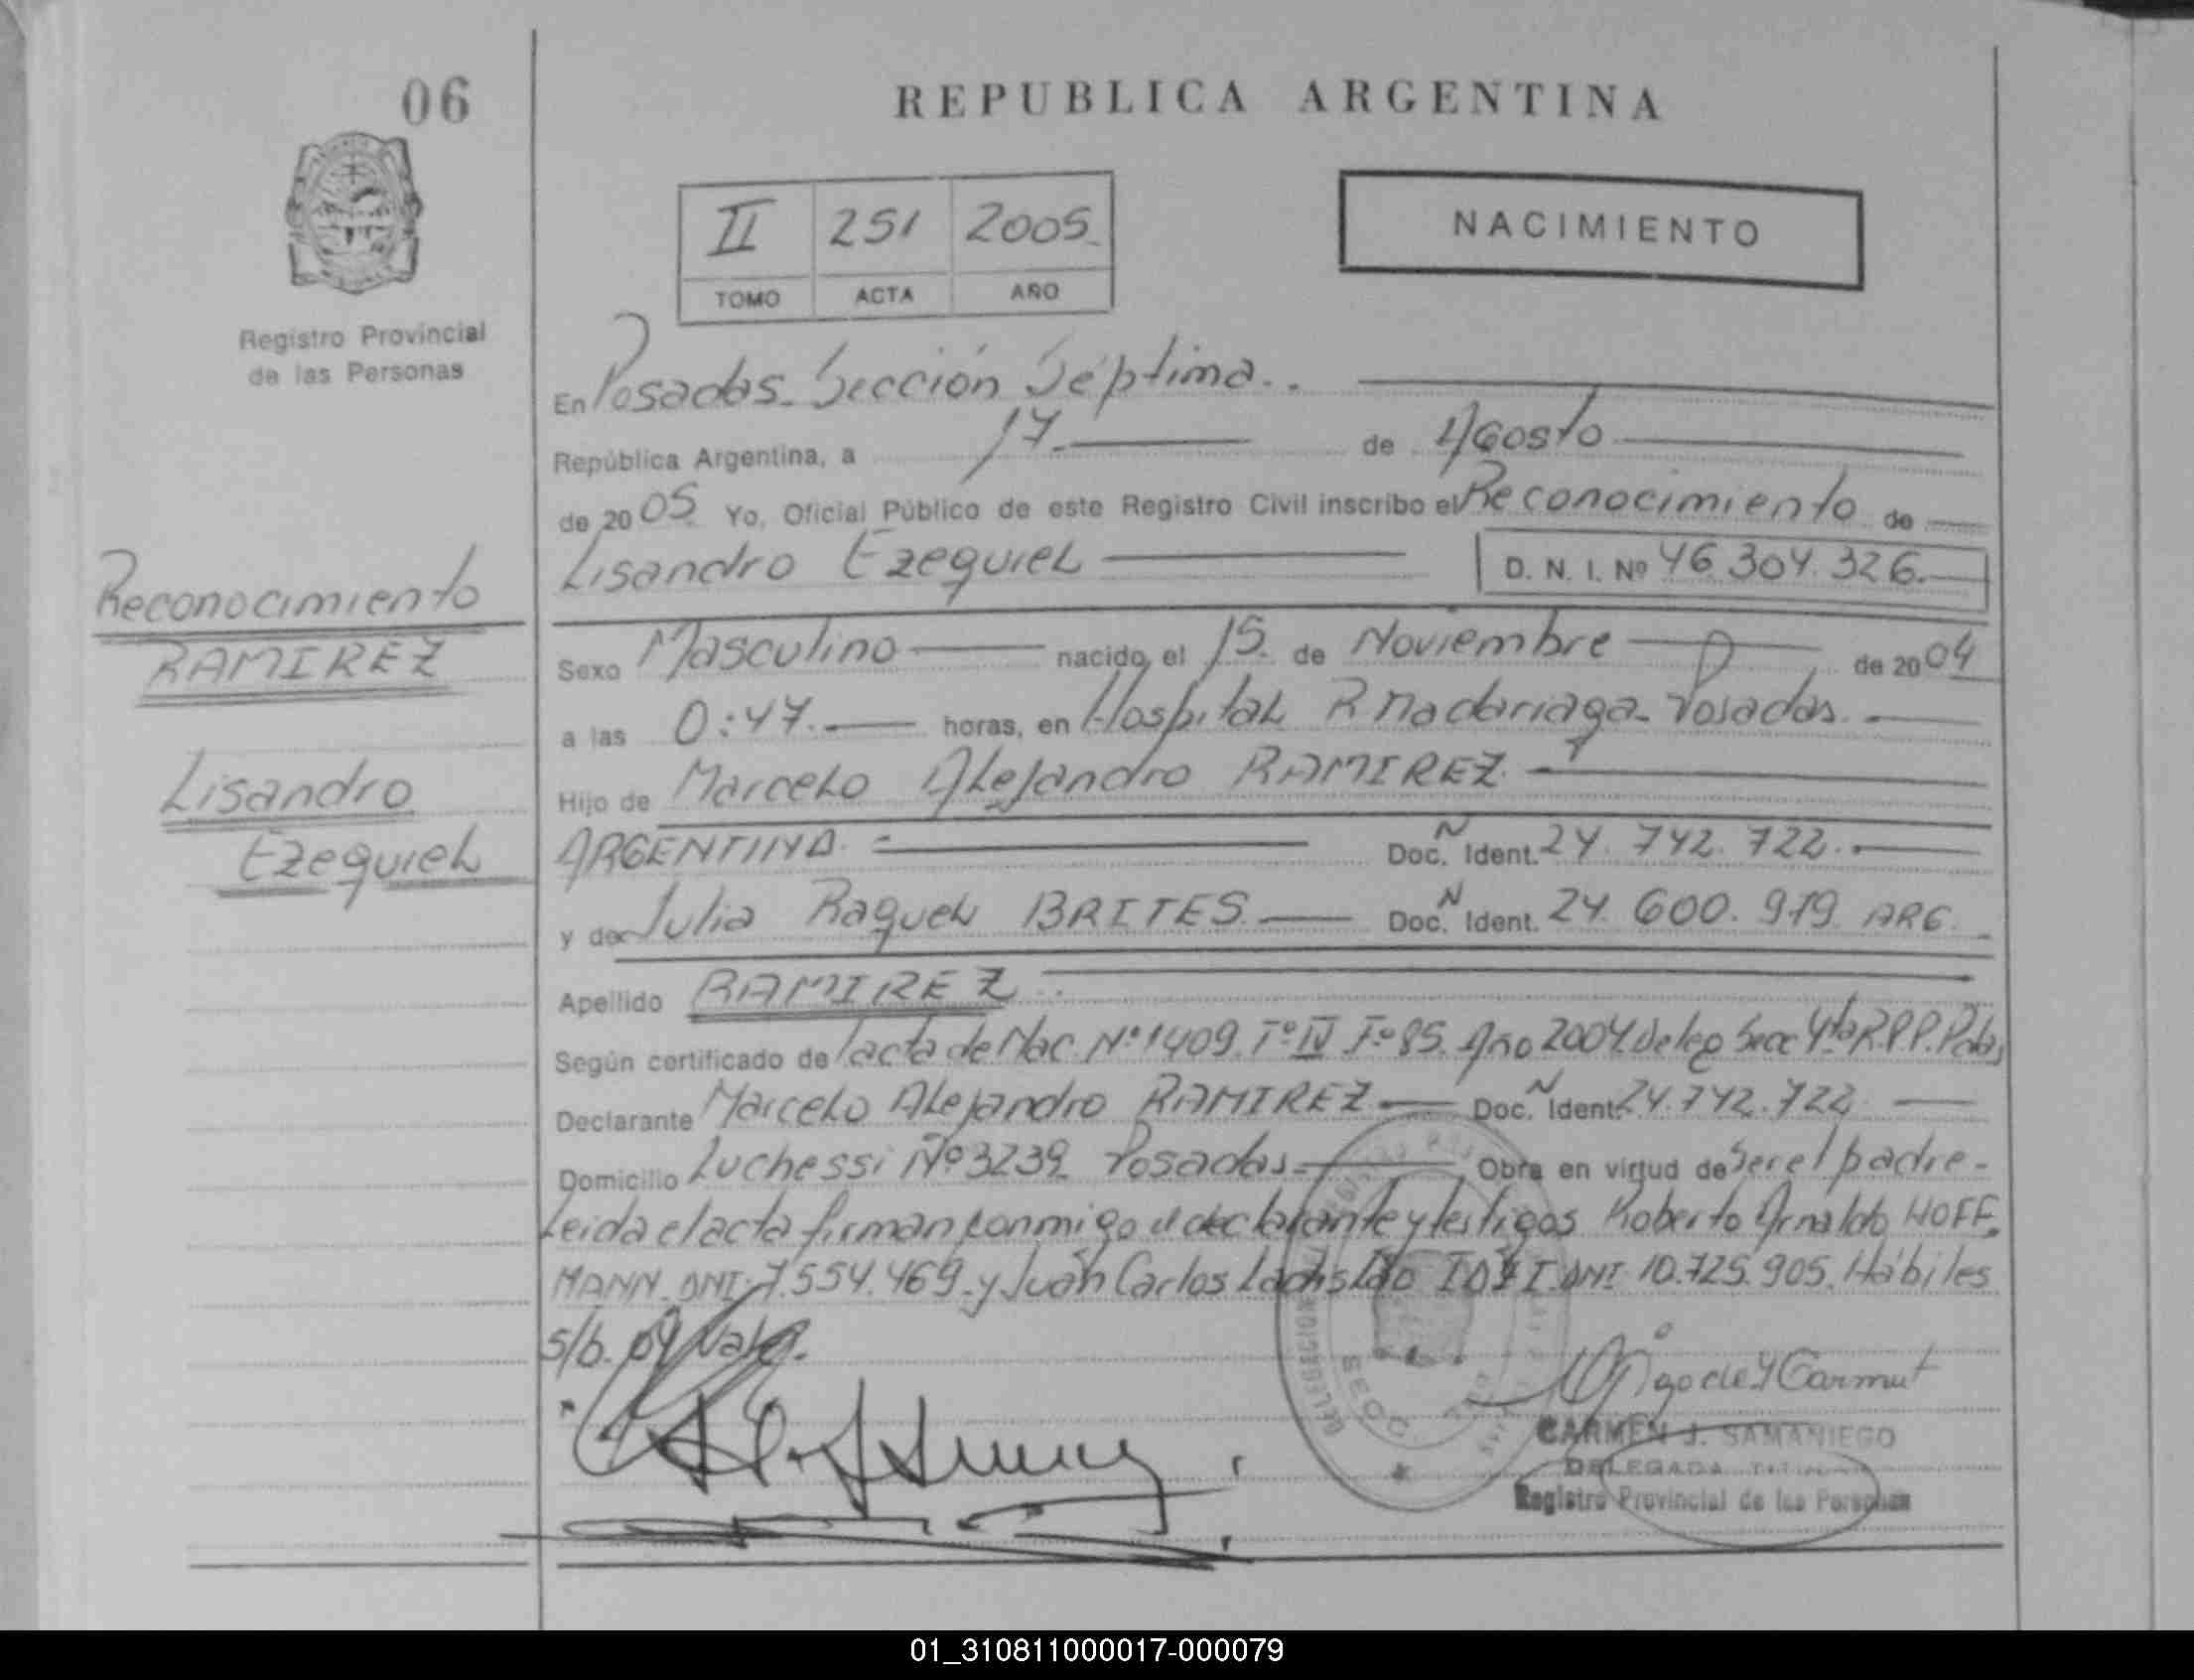 06
REPUBLICA ARGENTINA
II 251 2005
TOMO ACTA AÑO
NACIMIENTO
Registro Provincial
de las Personas
En Posadas. Sección Séptima..
República Argentina, a 17 de Agosto
de 2005 Yo, Oficial Público de este Registro Civil inscribo el Reconocimiento de
Lisandro Ezequiel D. N. I. Nº 46.304.326.
Reconocimiento
RAMIREZ
Lisandro
Ezequiel
Sexo Masculino nacido el 15. de Noviembre de 2004
a las 0:47. horas, en Hospital R Madariaga - Posadas.
Hijo de Marcelo Alejandro RAMIREZ.
ARGENTINA. Doc. Ident. 24. 742. 722.
y de Julia Raquel BRITES. Doc. Ident. 24. 600. 979. ARG.
Apellido RAMIREZ
Según certificado de acta de Nac. Nº 1409. Tº IV Fº 85. Año 2004. Deleg Secc 4ta R.P.P. Pdas
Declarante Marcelo Alejandro RAMIREZ Doc. Ident. 24.742.722
Domicilio Luchessi Nº 3239 Posadas. Obra en virtud de Ser el padre-
Leida el acta firman conmigo el declarante y testigos Roberto Arnaldo HOFF-
MANN. DNI. 7.554.469. y Juan Carlos DNI. 10.725.905. Hábiles
s/b.
CARMEN J. SAMANIEGO
DELEGADA TITULAR
Registro Provincial de las Personas
01_310811000017-000079